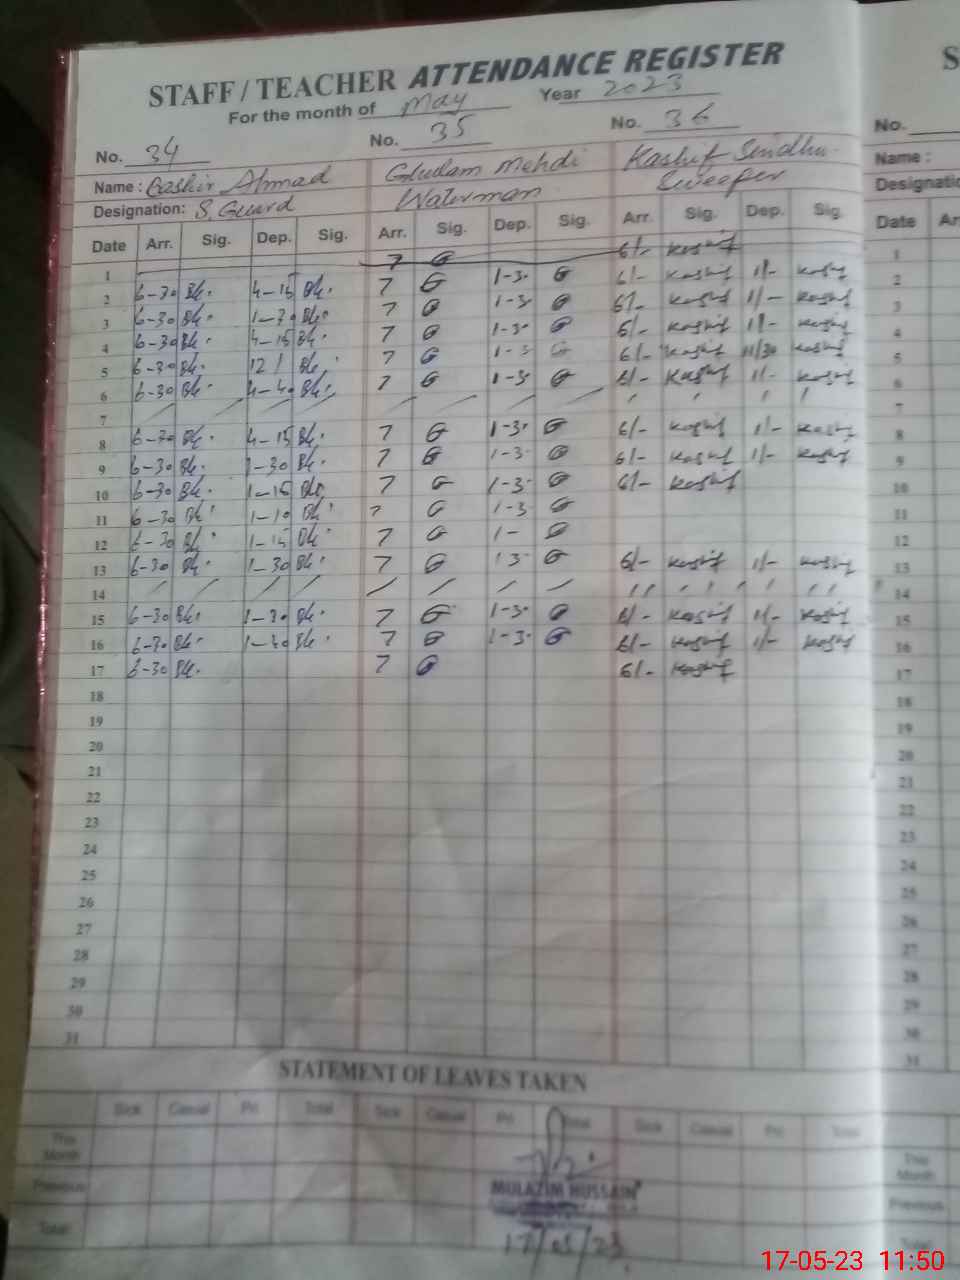 STAFF / TEACHER ATTENDANCE REGISTER
For the month of May Year 2023
No. 34 No. 35 No. 36 No.
Name : Bashir Ahmad Ghulam Mehdi Kashif Sindhu Name :
Designation: S. Guard Waterman Sweeper
Date Arr. Sig. Dep. Sig. Arr. Sig. Dep. Sig. Arr. Sig. Dep. Sig. Date
1 7 G 6/- Kashif 1
2 6-30 BA. 4-15 BA. 7 G 1-3. G 6/- Kashif 1/- Kashif 2
3 6-30 BA. 7 G 1-3. G 6/- Kashif 1/- Kashif 3
4 6-30 BA. 4-15 BA. 7 G 1-3. G 6/- Kashif 1/- Kashif 4
5 6-30 BA. 12/ BA. 7 G 1-3 G 6/- Kashif 11/30 Kashif 5
6 6-30 BA. BA. 7 G 1-3. G 6/- Kashif 1/- Kashif 6
7 7
8 6-30 BA. 4-15 BA. 7 G 1-3. G 6/- Kashif 1/- Kashif 8
9 6-30 BA. 1-30 BA. 7 G 1-3. G 6/- Kashif 1/- Kashif 9
10 6-30 BA. 1-15 BA. 7 G 1-3. G 6/- Kashif 10
11 6-30 BA. 1-10 BA. 7 G 1-3 G 11
12 6-30 BA. 1-15 BA. 7 G 1- G 12
13 6-30 BA. 1-30 BA. 7 G 1 3 G 6/- Kashif 1/- Kashif 13
14 14
15 6-30 BA. 1-30 BA. 7 G 1-3. G 6/- Kashif 1/- Kashif 15
16 6-30 BA. 1-30 BA. 7 G 1-3. G 6/- Kashif 1/- Kashif 16
17 6-30 BA. 7 G 6/- Kashif 17
18 18
19 19
20 20
21 21
22 22
23 23
24 24
25 25
26 26
27 27
28 28
29 29
30 30
31 31
STATEMENT OF LEAVES TAKEN
Sick Casual Pri Total Sick Casual Pri Total Sick Casual Pri Total
This Month This Month
Previous Previous
Total Total
MULAZIM HUSSAIN
17/05/23
17-05-23 11:50